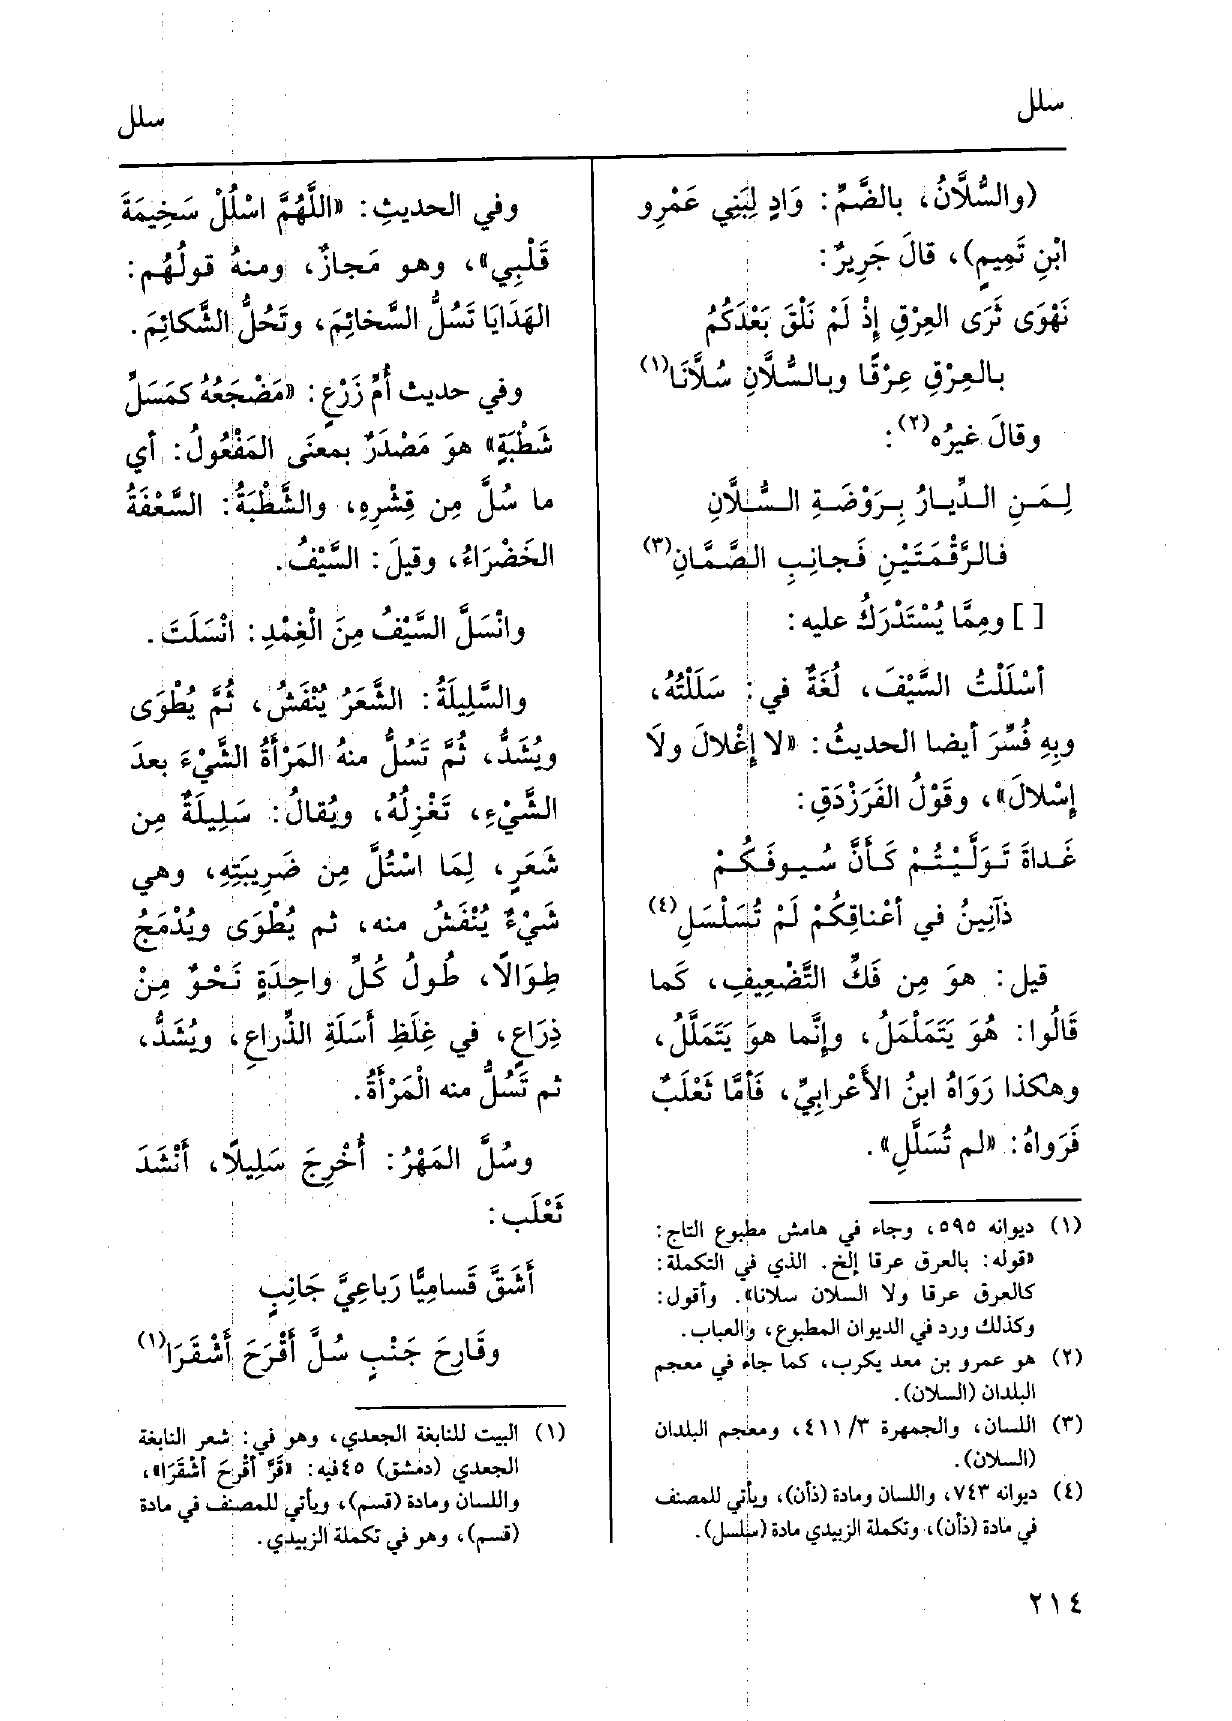 سلل
سلل
(والسُّلَّانُ، بالضَّمِّ: وَادٍ لِبَنِي عَمْرِو
ابْنِ تَمِيمٍ)، قالَ جَرِيرٌ:
نَهْوَى ثَرَى العِرْقِ إِذْ لَمْ نَلْقَ بَعْدَكُمُ
بالعِرْقِ عِرْقًا وبالسُّلَّانِ سُلَّانَا(١)
وقالَ غيرُه(٢):
لِمَنِ الدِّيارُ بِرَوْضَةِ السُّلَّانِ
فالرَّقْمَتَيْنِ فَجانِبِ الصَّمَّانِ(٣)
[ ] ومِمَّا يُسْتَدْرَكُ عليه:
أسْلَلْتُ السَّيْفَ، لُغَةٌ في: سَلَلْتُهُ،
وبِهِ فُسِّرَ أيضا الحديثُ: «لا إغْلالَ ولَا
إسْلالَ»، وقَوْلُ الفَرَزْدَقِ:
غَداةَ تَوَلَّيْتُمْ كَأنَّ سُيوفَكُمْ
ذَآنِينُ في أعْناقِكُمْ لَمْ تُسَلْسَلِ(٤)
قيل: هوَ مِن فَكِّ التَّضْعِيفِ، كَما
قَالُوا: هُوَ يَتَمَلْمَلُ، وإنَّما هوَ يَتَمَلَّلُ،
وهكذا رَوَاهُ ابنُ الأَعْرابِيِّ، فَأمَّا ثَعْلَبٌ
فَرَواهُ: «لم تُسَلَّلِ».
(١) ديوانه ٥٩٥، وجاء في هامش مطبوع التاج:
«قوله: بالعرق عرقا إلخ. الذي في التكملة:
كالعرق عرقا ولا السلان سلانا». وأقول:
وكذلك ورد في الديوان المطبوع، والعباب.
(٢) هو عمرو بن معد يكرب، كما جاء في معجم
البلدان (السلان).
(٣) اللسان، والجمهرة ٣/ ٤١١، ومعجم البلدان
(السلان).
(٤) ديوانه ٧٤٣، واللسان ومادة (ذأن)، ويأتي للمصنف
في مادة (ذأن)، وتكملة الزبيدي مادة (سلسل).
وفي الحديثِ: «اللَّهُمَّ اسْلُلْ سَخِيمَةَ
قَلْبِي»، وهو مَجازٌ، ومنهُ قولُهُم:
الهَدَايَا تَسُلُّ السَّخائِمَ، وتَحُلُّ الشَّكائِمَ.
وفي حديث أُمِّ زَرْعٍ: «مَضْجَعُهُ كمَسَلِّ
شَطْبَةٍ» هوَ مَصْدَرٌ بمعنَى المَفْعُولُ: أي
ما سُلَّ مِن قِشْرِهِ، والشَّطْبَةُ: السَّعْفَةُ
الخَضْرَاءُ، وقيلَ: السَّيْفُ.
وانْسَلَّ السَّيْفُ مِنَ الْغِمْدِ: انْسَلَتَ.
والسَّلِيلَةُ: الشَّعَرُ يُنْفَشُ، ثُمَّ يُطْوَى
ويُشَدُّ، ثُمَّ تَسُلُّ منهُ المَرْأَةُ الشَّيْءَ بعدَ
الشَّيْءِ، تَغْزِلُهُ، ويُقالُ: سَلِيلَةٌ مِن
شَعَرٍ، لِمَا اسْتُلَّ مِن ضَرِيبَتِهِ، وهي
شَيْءٌ يُنْفَشُ منه، ثم يُطْوَى ويُدْمَجُ
طِوَالًا، طُولُ كُلِّ واحِدَةٍ نَحْوٌ مِنْ
ذِرَاعٍ، في غِلَظِ أَسَلَةِ الذِّراعِ، ويُشَدُّ،
ثم تَسُلُّ منه الْمَرْأَةُ.
وسُلَّ المَهْرُ: أُخْرِجَ سَلِيلًا، أَنْشَدَ
ثَعْلَب:
أَشَقَّ قَسامِيًّا رَباعِيَّ جَانِبٍ
وقَارِحَ جَنْبٍ سُلَّ أَقْرَحَ أَشْقَرَا(١)
(١) البيت للنابغة الجعدي، وهو في: شعر النابغة
الجعدي (دمشق) ٤٥فيه: «قَرَّ أَقْرحَ أشْقَرَا»،
واللسان ومادة (قسم)، ويأتي للمصنف في مادة
(قسم)، وهو في تكملة الزبيدي.
٢١٤